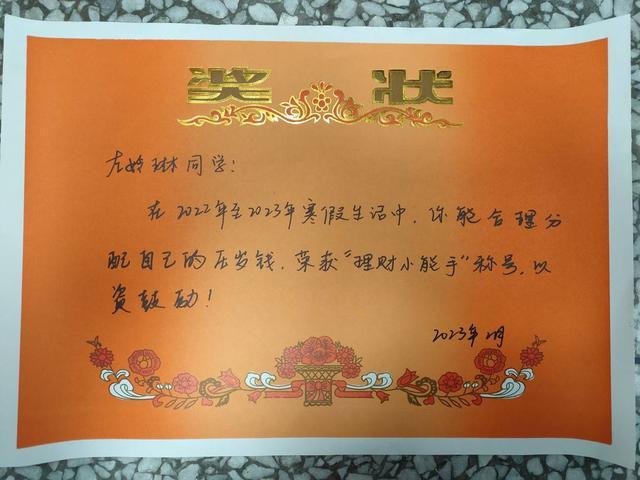 奖状
左姈琳同学：
在2022年至2023年寒假生活中，你能合理分
配自己的压岁钱，荣获“理财小能手”称号，以
资鼓励！
2023年2月